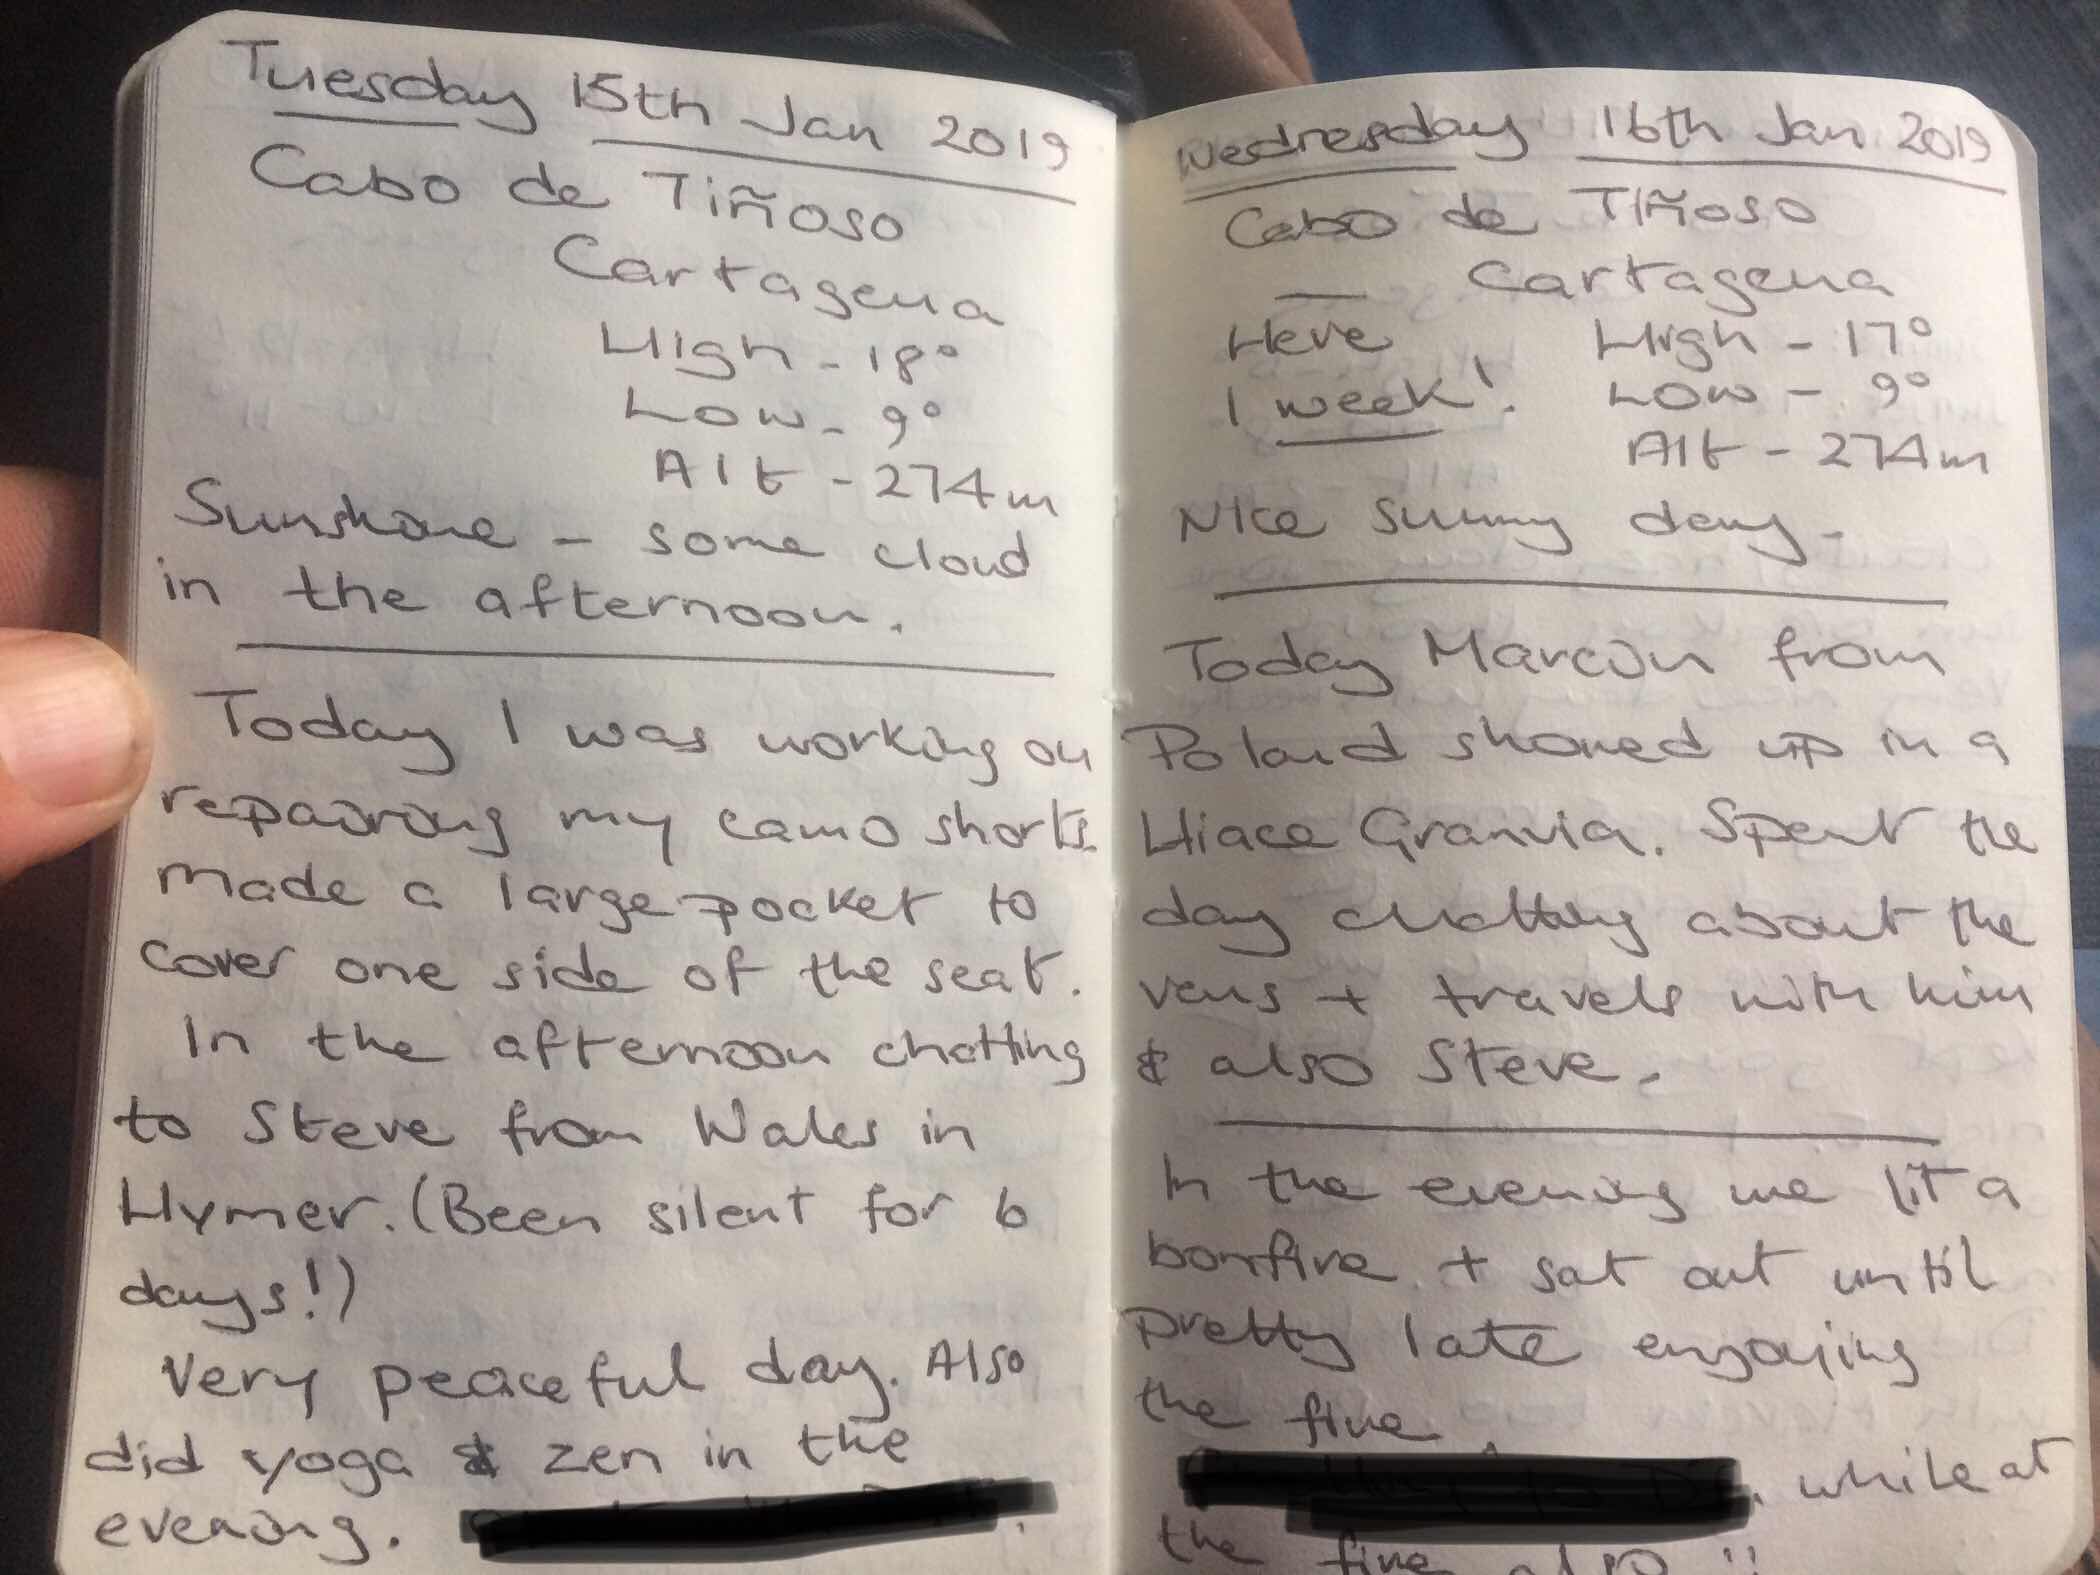 Tuesday 15th Jan 2019
Cabo de Tiñoso
Cartagena
High - 18°
Low - 9°
Alt - 274m
Sunshine - some cloud
in the afternoon.
Today I was working on
repairing my camo shorts.
Made a large pocket to
cover one side of the seat.
In the afternoon chatting
to Steve from Wales in
Hymer. (Been silent for 6
days!)
Very peaceful day. Also
did yoga & zen in the
evening.
Wednesday 16th Jan 2019
Cabo de Tiñoso
Cartagena
Here High - 17°
1 week! Low - 9°
Alt - 274m
Nice sunny day.
Today Marcin from
Poland showed up in a
Hiace Granvia. Spent the
day chatting about the
vans + travels with him
& also Steve.
In the evening we lit a
bonfire + sat out until
pretty late enjoying
the fire.
while at
the fire also !!